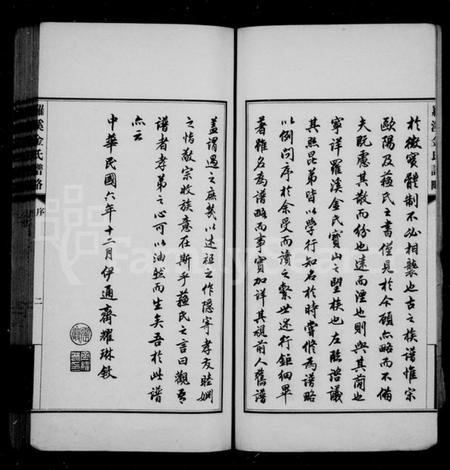 於徵實體制不必相襲也古之族譜惟宗
歐陽及蘇氏之書僅見於今顧亦略而不備
夫既慮其散而份也遠而湮也則與其簡也
寧詳羅溪金氏寶山之望族也左臨諮議
其熙昆弟皆以學行知名於時嘗修為譜略
以例問序於余受而讀之繫世述行鉅細畢
著雖名為譜略而事實加詳其視前人舊譜
蓋謂過之庶幾以述祖之作隱寓孝友睦婣
之情敬宗收族意在斯乎蘇氏之言曰觀吾
譜者孝弟之心可以油然而生矣吾於此譜
亦云
中華民國六年十二月伊通齊耀琳敘
羅溪金氏譜略
序
二
羅溪金氏譜略
FamilySearch